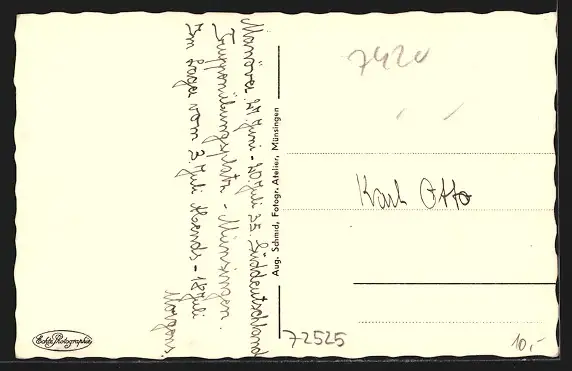 Manöver 27. Juni - 20. Juli 35. Süddeutschland
Truppenübungsplatz - Münsingen.
Im Lager vom 3. Juli Abends - 18. Juli
Morgens.
Aug. Schmid, Fotogr. Atelier, Münsingen
7420
Karl Otto
72525
10,-
Echte Photographie